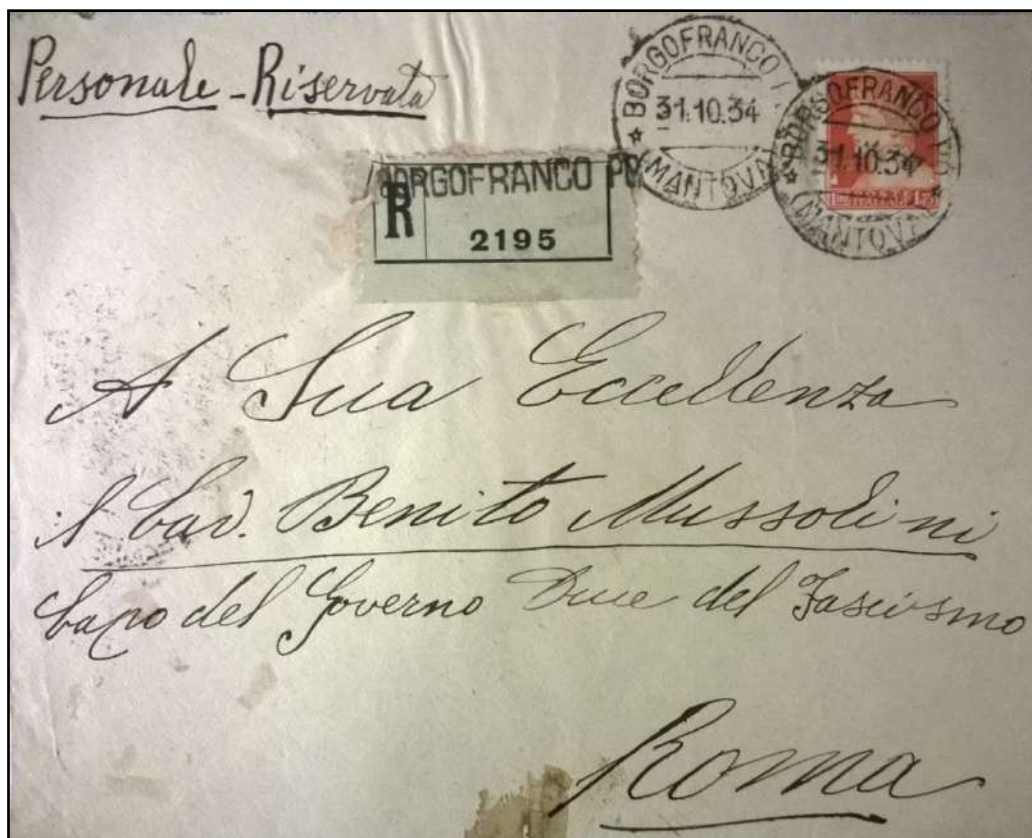 Personale - Riservata
BORGOFRANCO P
31.10.34
(MANTOVA)
BORGOFRANCO PO
31.10.34
(MANTOVA)
BORGOFRANCO PO
R
2195
A Sua Eccellenza
il Cav. Benito Mussolini
Capo del Governo Duce del Fascismo
Roma